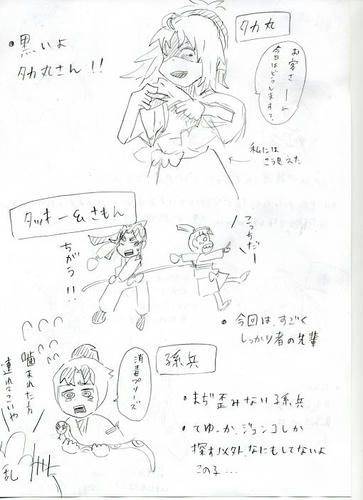 タカ丸
・黒いよ
タカ丸さん!!
お客さーん
今日はどうしますて。
私には
こう見えた
タッキー&さもん
ちがう!!
こっちだー
・今回は、すごく
しっかり者の先輩
孫兵
消毒プリーズ
噛まれた方
連れてこいや
乱
・まぢ歪みない孫兵
・てゆーか、ジュンコしか
探すノスタト、なにもしてないよ
この子…